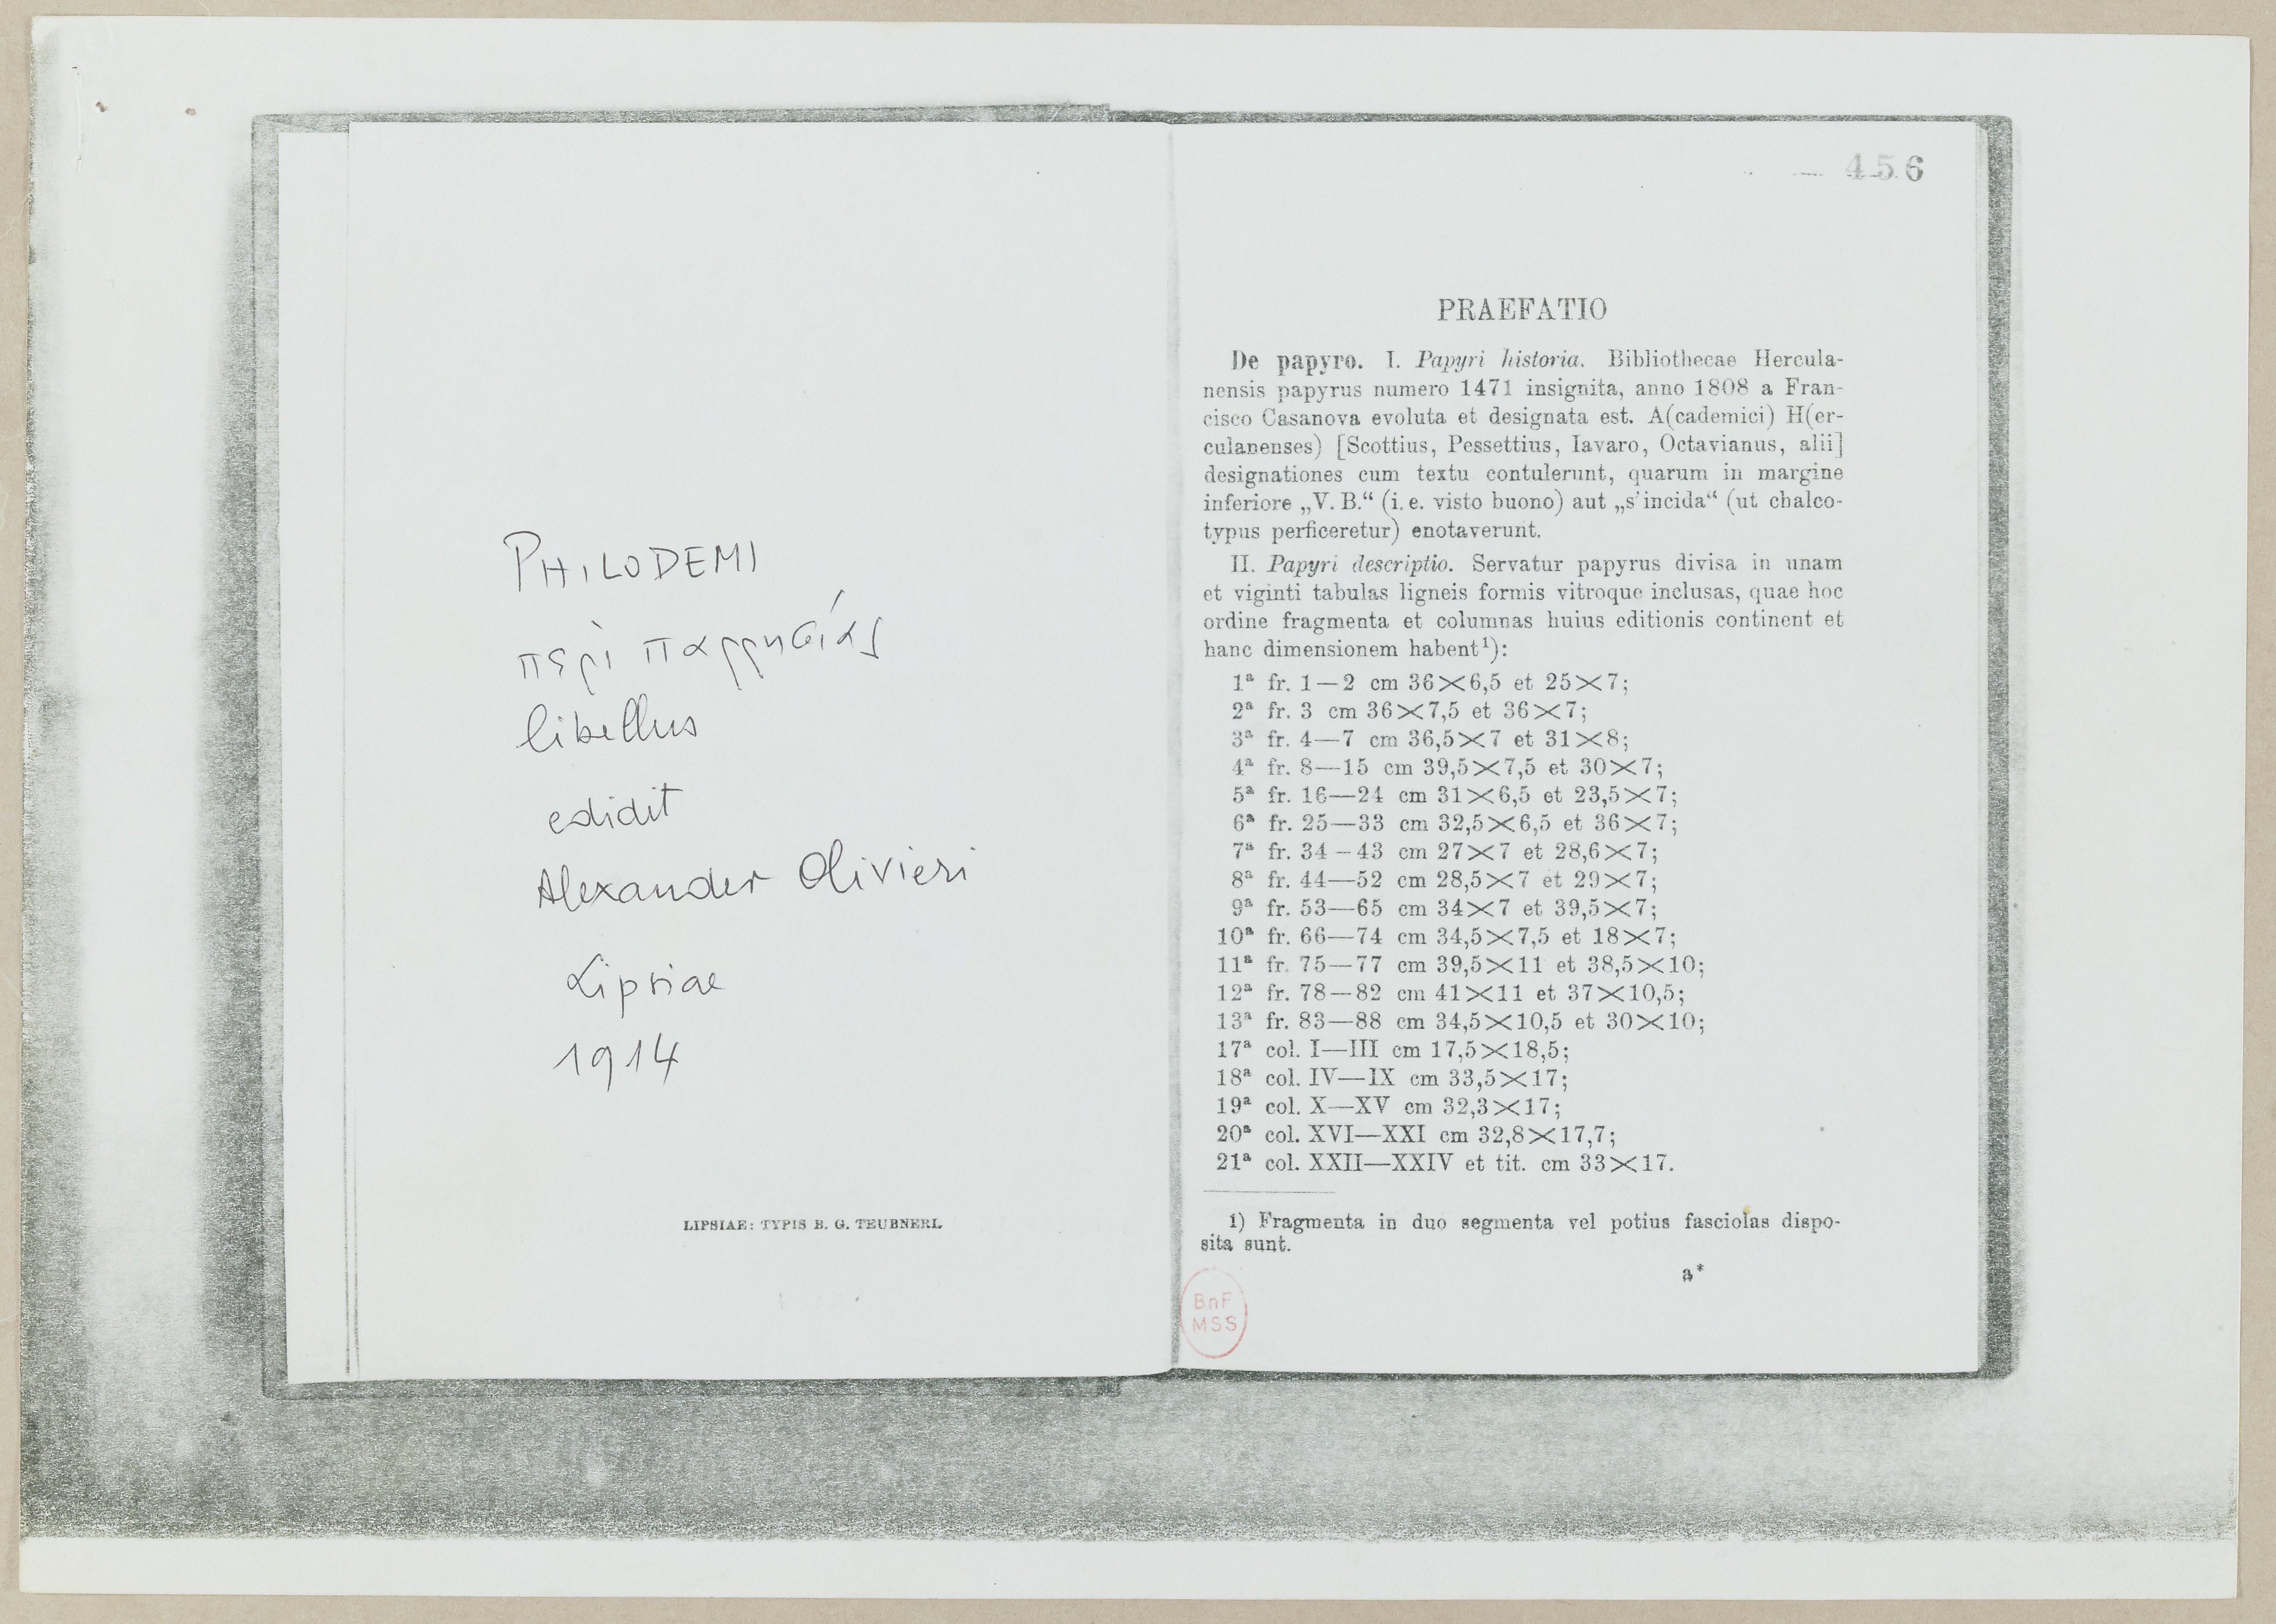 PHILODEMI
περὶ παρρησίας
libellus
edidit
Alexander Olivieri
Lipsiae
1914
LIPSIAE: TYPIS B. G. TEUBNERI.
456
PRAEFATIO
De papyro. I. Papyri historia. Bibliothecae Hercula-
nensis papyrus numero 1471 insignita, anno 1808 a Fran-
cisco Casanova evoluta et designata est. A(cademici) H(er-
culanenses) [Scottius, Pessettius, Iavaro, Octavianus, alii]
designationes cum textu contulerunt, quarum in margine
inferiore „V. B.“ (i. e. visto buono) aut „s'incida“ (ut chalco-
typus perficeretur) enotaverunt.
II. Papyri descriptio. Servatur papyrus divisa in unam
et viginti tabulas ligneis formis vitroque inclusas, quae hoc
ordine fragmenta et columnas huius editionis continent et
hanc dimensionem habent¹):
1ª fr. 1—2 cm 36×6,5 et 25×7;
2ª fr. 3 cm 36×7,5 et 36×7;
3ª fr. 4—7 cm 36,5×7 et 31×8;
4ª fr. 8—15 cm 39,5×7,5 et 30×7;
5ª fr. 16—24 cm 31×6,5 et 23,5×7;
6ª fr. 25—33 cm 32,5×6,5 et 36×7;
7ª fr. 34—43 cm 27×7 et 28,6×7;
8ª fr. 44—52 cm 28,5×7 et 29×7;
9ª fr. 53—65 cm 34×7 et 39,5×7;
10ª fr. 66—74 cm 34,5×7,5 et 18×7;
11ª fr. 75—77 cm 39,5×11 et 38,5×10;
12ª fr. 78—82 cm 41×11 et 37×10,5;
13ª fr. 83—88 cm 34,5×10,5 et 30×10;
17ª col. I—III cm 17,5×18,5;
18ª col. IV—IX cm 33,5×17;
19ª col. X—XV cm 32,3×17;
20ª col. XVI—XXI cm 32,8×17,7;
21ª col. XXII—XXIV et tit. cm 33×17.
1) Fragmenta in duo segmenta vel potius fasciolas dispo-
sita sunt.
a*
BnF
MSS